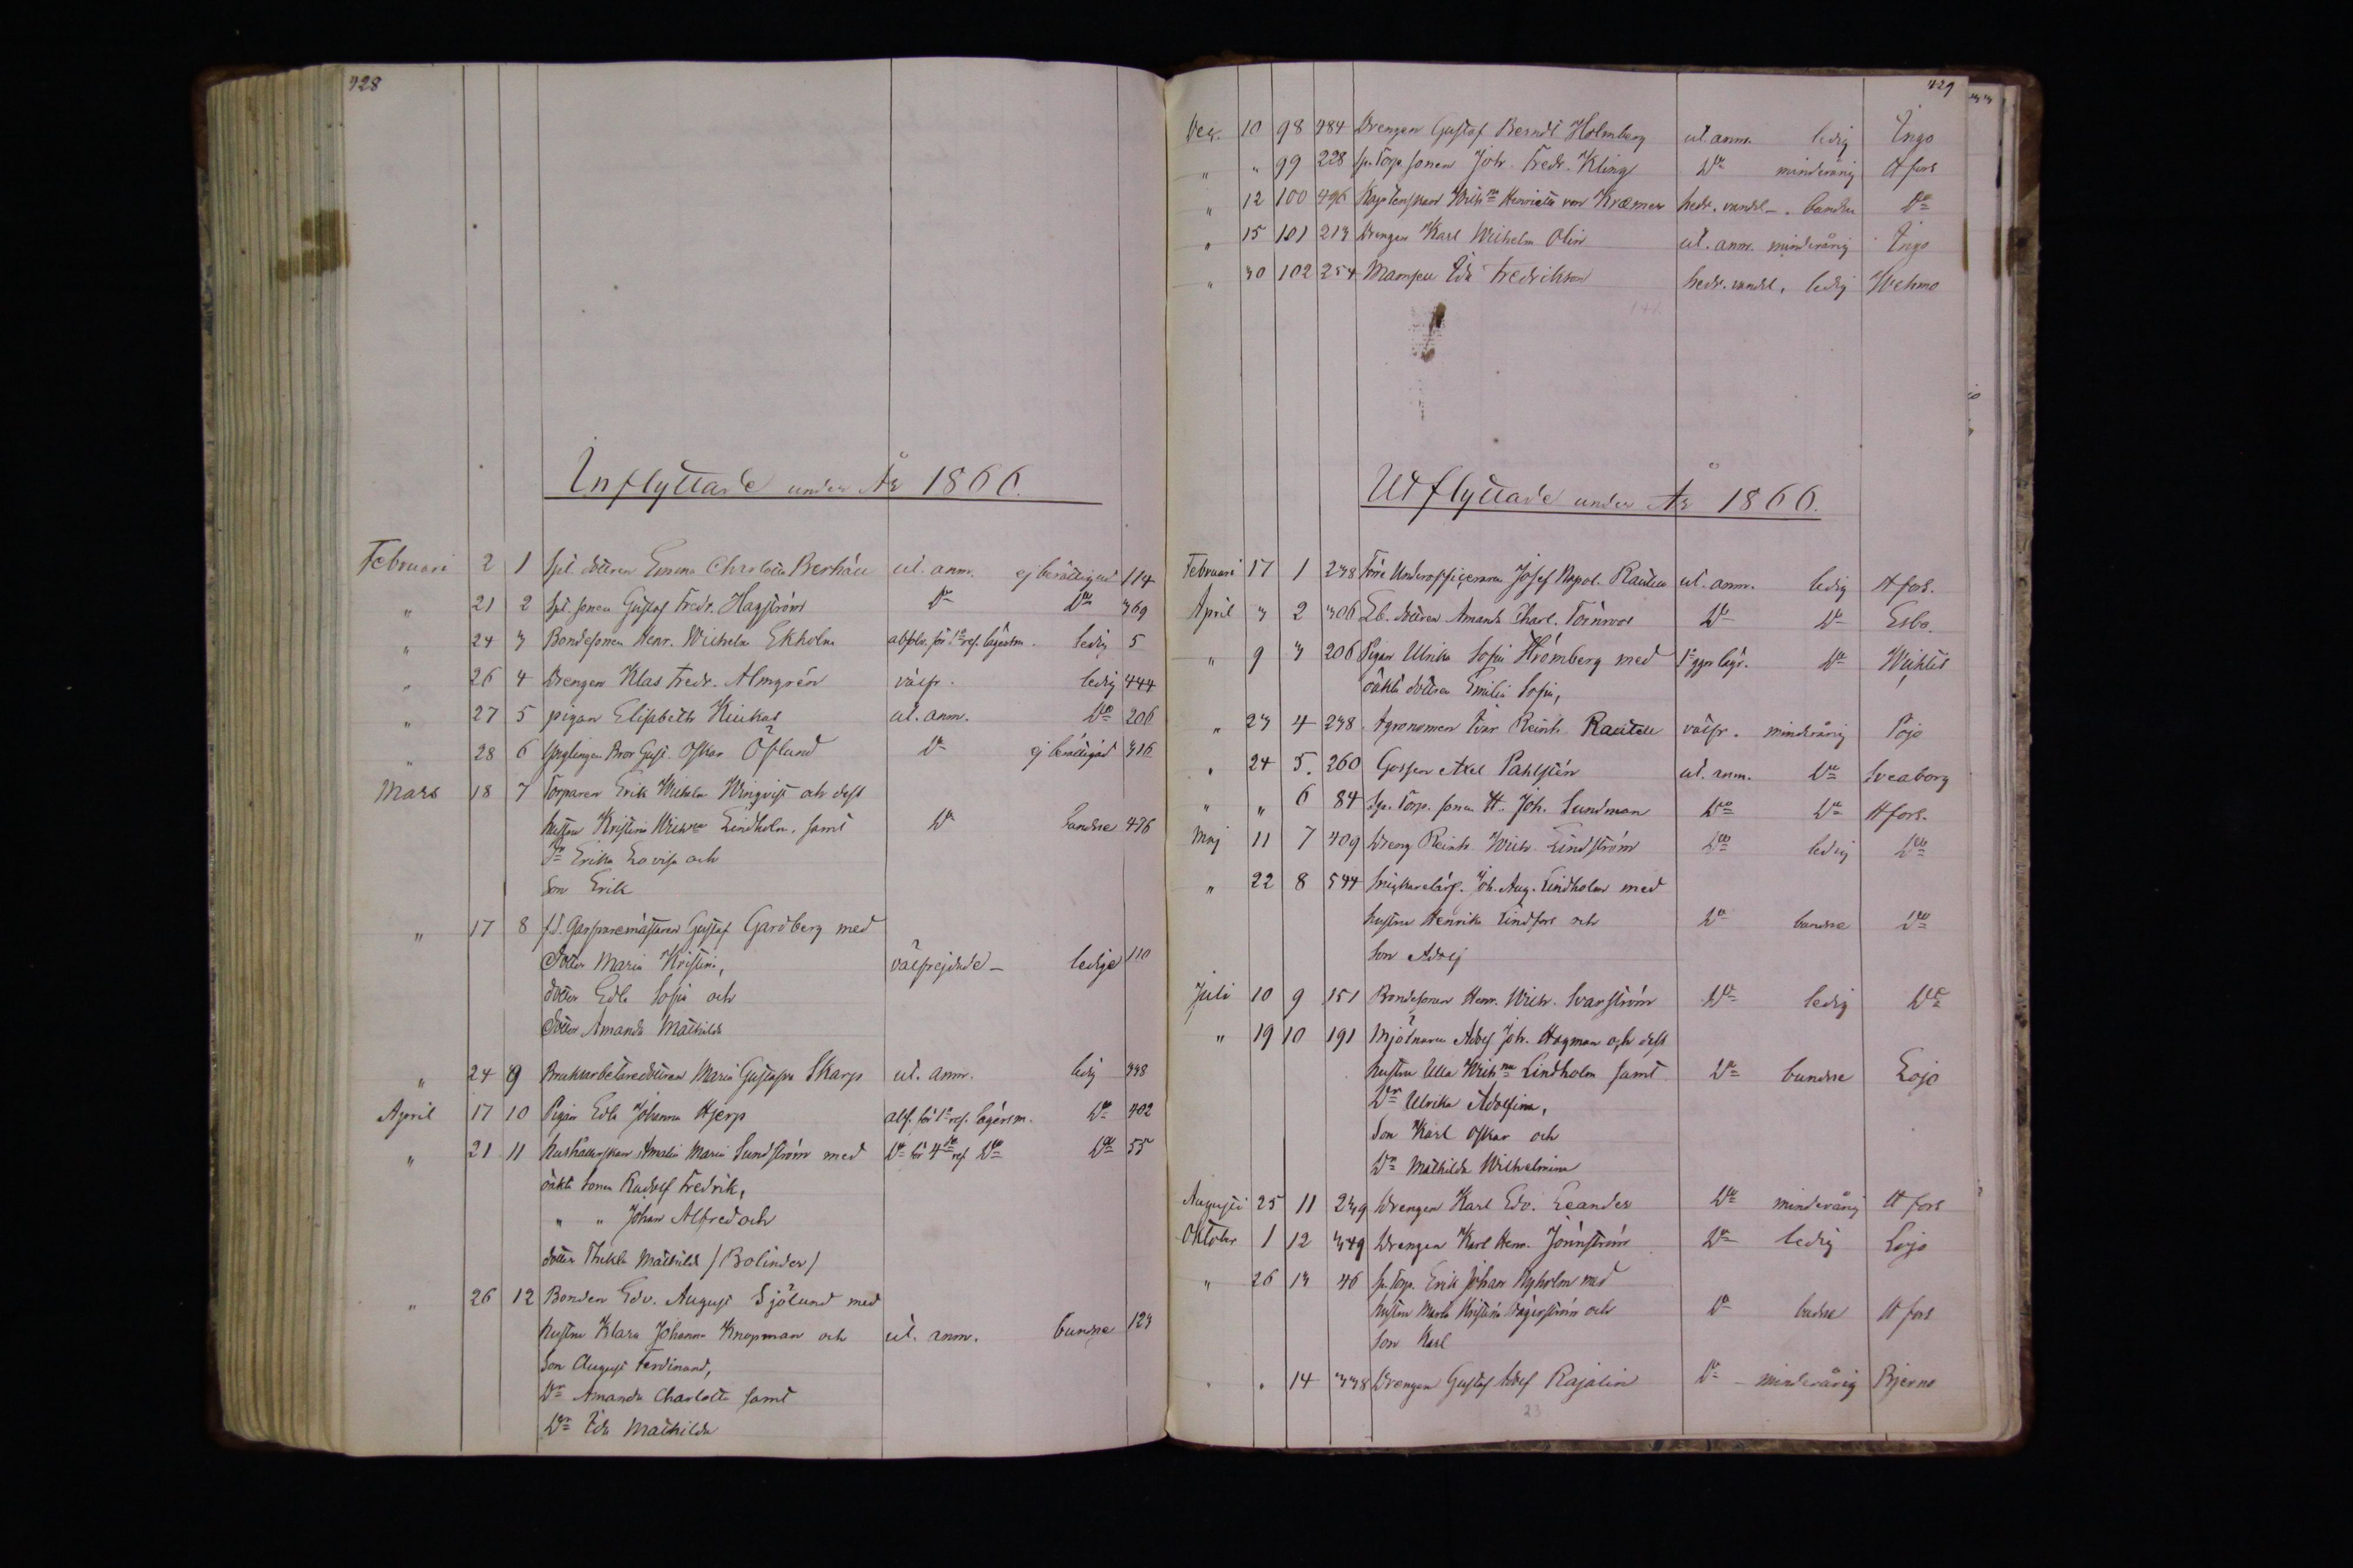 428
Inflyttade under År 1866.
Februari 2 1 Spl. dottren Emma Charlotta Berháll ut. anm. ej berättigad 114
" 21 2 Spl. sonen Gustaf Fredr. Hagström Do Do 369
" 24 3 Bondesonen Henr. Wilhelm Ekholm absolv. för 1a resa lägersm. ledig 5
" 26 4 Drengen Klas Fredr. Almgrén välfr. ledig 444
" 27 5 pigan Elisabeth Kiukas ut. anm. Do 206
" 28 6 Ynglingen Bror Gust. Oskar Östlund Do ej berättigad 316
Mars 18 7 Torparen Erik Wilhelm Wingvist och dess
hustru Kristina Wilhna Lindholm, samt Do bundne 476
Dr Erika Lovisa och
Son Erik
" 17 8 f.d. Garfvaremästaren Gustaf Gardberg med
dotter Maria Kristina, välfrejdade – ledige 110
dotter Edla Sofia och
dotter Amanda Mathilda
" 24 9 Bruksarbetaredottren Maria Gustafva Skarp ut. anm. ledig 338
April 17 10 Pigan Edla Johanna Hjerp abs. för 1a res. lägersm. Do 402
" 21 11 Hushållerskan Amalia Maria Sundström med Do för 4de res Do Do 55
oäkta sonen Rudolf Fredrik,
" " Johan Alfred och
dotter Thekla Mathilda /Bolinder/
" 26 12 Bonden Edv. August Sjölund med
hustru Klara Johanna Knopman och ut. anm. bundne 123
Son August Ferdinand,
Dr Amanda Charlotta samt
Dr Ida Mathilda
429
Dec. 10 98 484 Drengen Gustaf Berndt Holmberg ut. anm. ledig Ingo
" " 99 228 Sp. Torp. sonen Joh. Fredr. Kling Do minderårig Hfors
" 12 100 496 Wilhna Henrietta von Kræmer hedr. vandel –. bunden Do
" 15 101 213 Drengen Karl Wilhelm Olin ut. anm. minderårig Ingo
" 30 102 254 Mamsell Ida Fredrikson hedr. vandel, ledig Wehmo
Utflyttade under År 1866.
Februari 17 1 238 Förre Underofficeraren Josef Napol. Rautell ut. anm. ledig Hfors.
April 3 2 306 Lb. dottren Amanda Charl. Törnroos Do Do Esbo.
" 9 3 206 Pigan Ulrika Sofia Strömberg med 1a ggn lägr. Do Wichtis
oäkta dottren Emilia Sofia,
" 23 4 238. Agronomen Ivar Reinh. Rautell välfr. minderårig Pojo
" 24 5. 260 Gossen Axel Pahlstén ut. anm. Do Sveaborg
" " 6 84 Sp. Torp. sonen H. Joh. Sundman Do Do Hfors.
Maj 11 7 409 Dreng Reinh. Wilh. Lindström Do ledig Do
" 22 8 544 Snickarelärl. Joh. Aug. Lindholm med
hustru Henrika Lindfors och Do bundne Do
Son Adolf
Juli 10 9 151 Bondesonen Henr. Wilh. Svarström Do ledig Do
" 19 10 191 Mjölnaren Adolf Joh. Hagman och dess
hustru Ulla Wilhna Lindholm samt Do bundne Lojo
Dr Ulrika Adolfina,
Son Karl Oskar och
Dr Mathilda Wilhelmina
Augusti 25 11 239 Drengen Karl Edv. Leander Do minderårig Hfors
Oktober 1 12 349 Drengen Karl Henr. Jönnström Do ledig Lojo
" 26 13 46 Sp. Torp. Erik Johan Nyholm med
hustru Maria Kristina och Do bundne Hfors
Son Karl
" " 14 338 Drengen Gustaf Adolf Rajalin Do – minderårig Bjerno
23